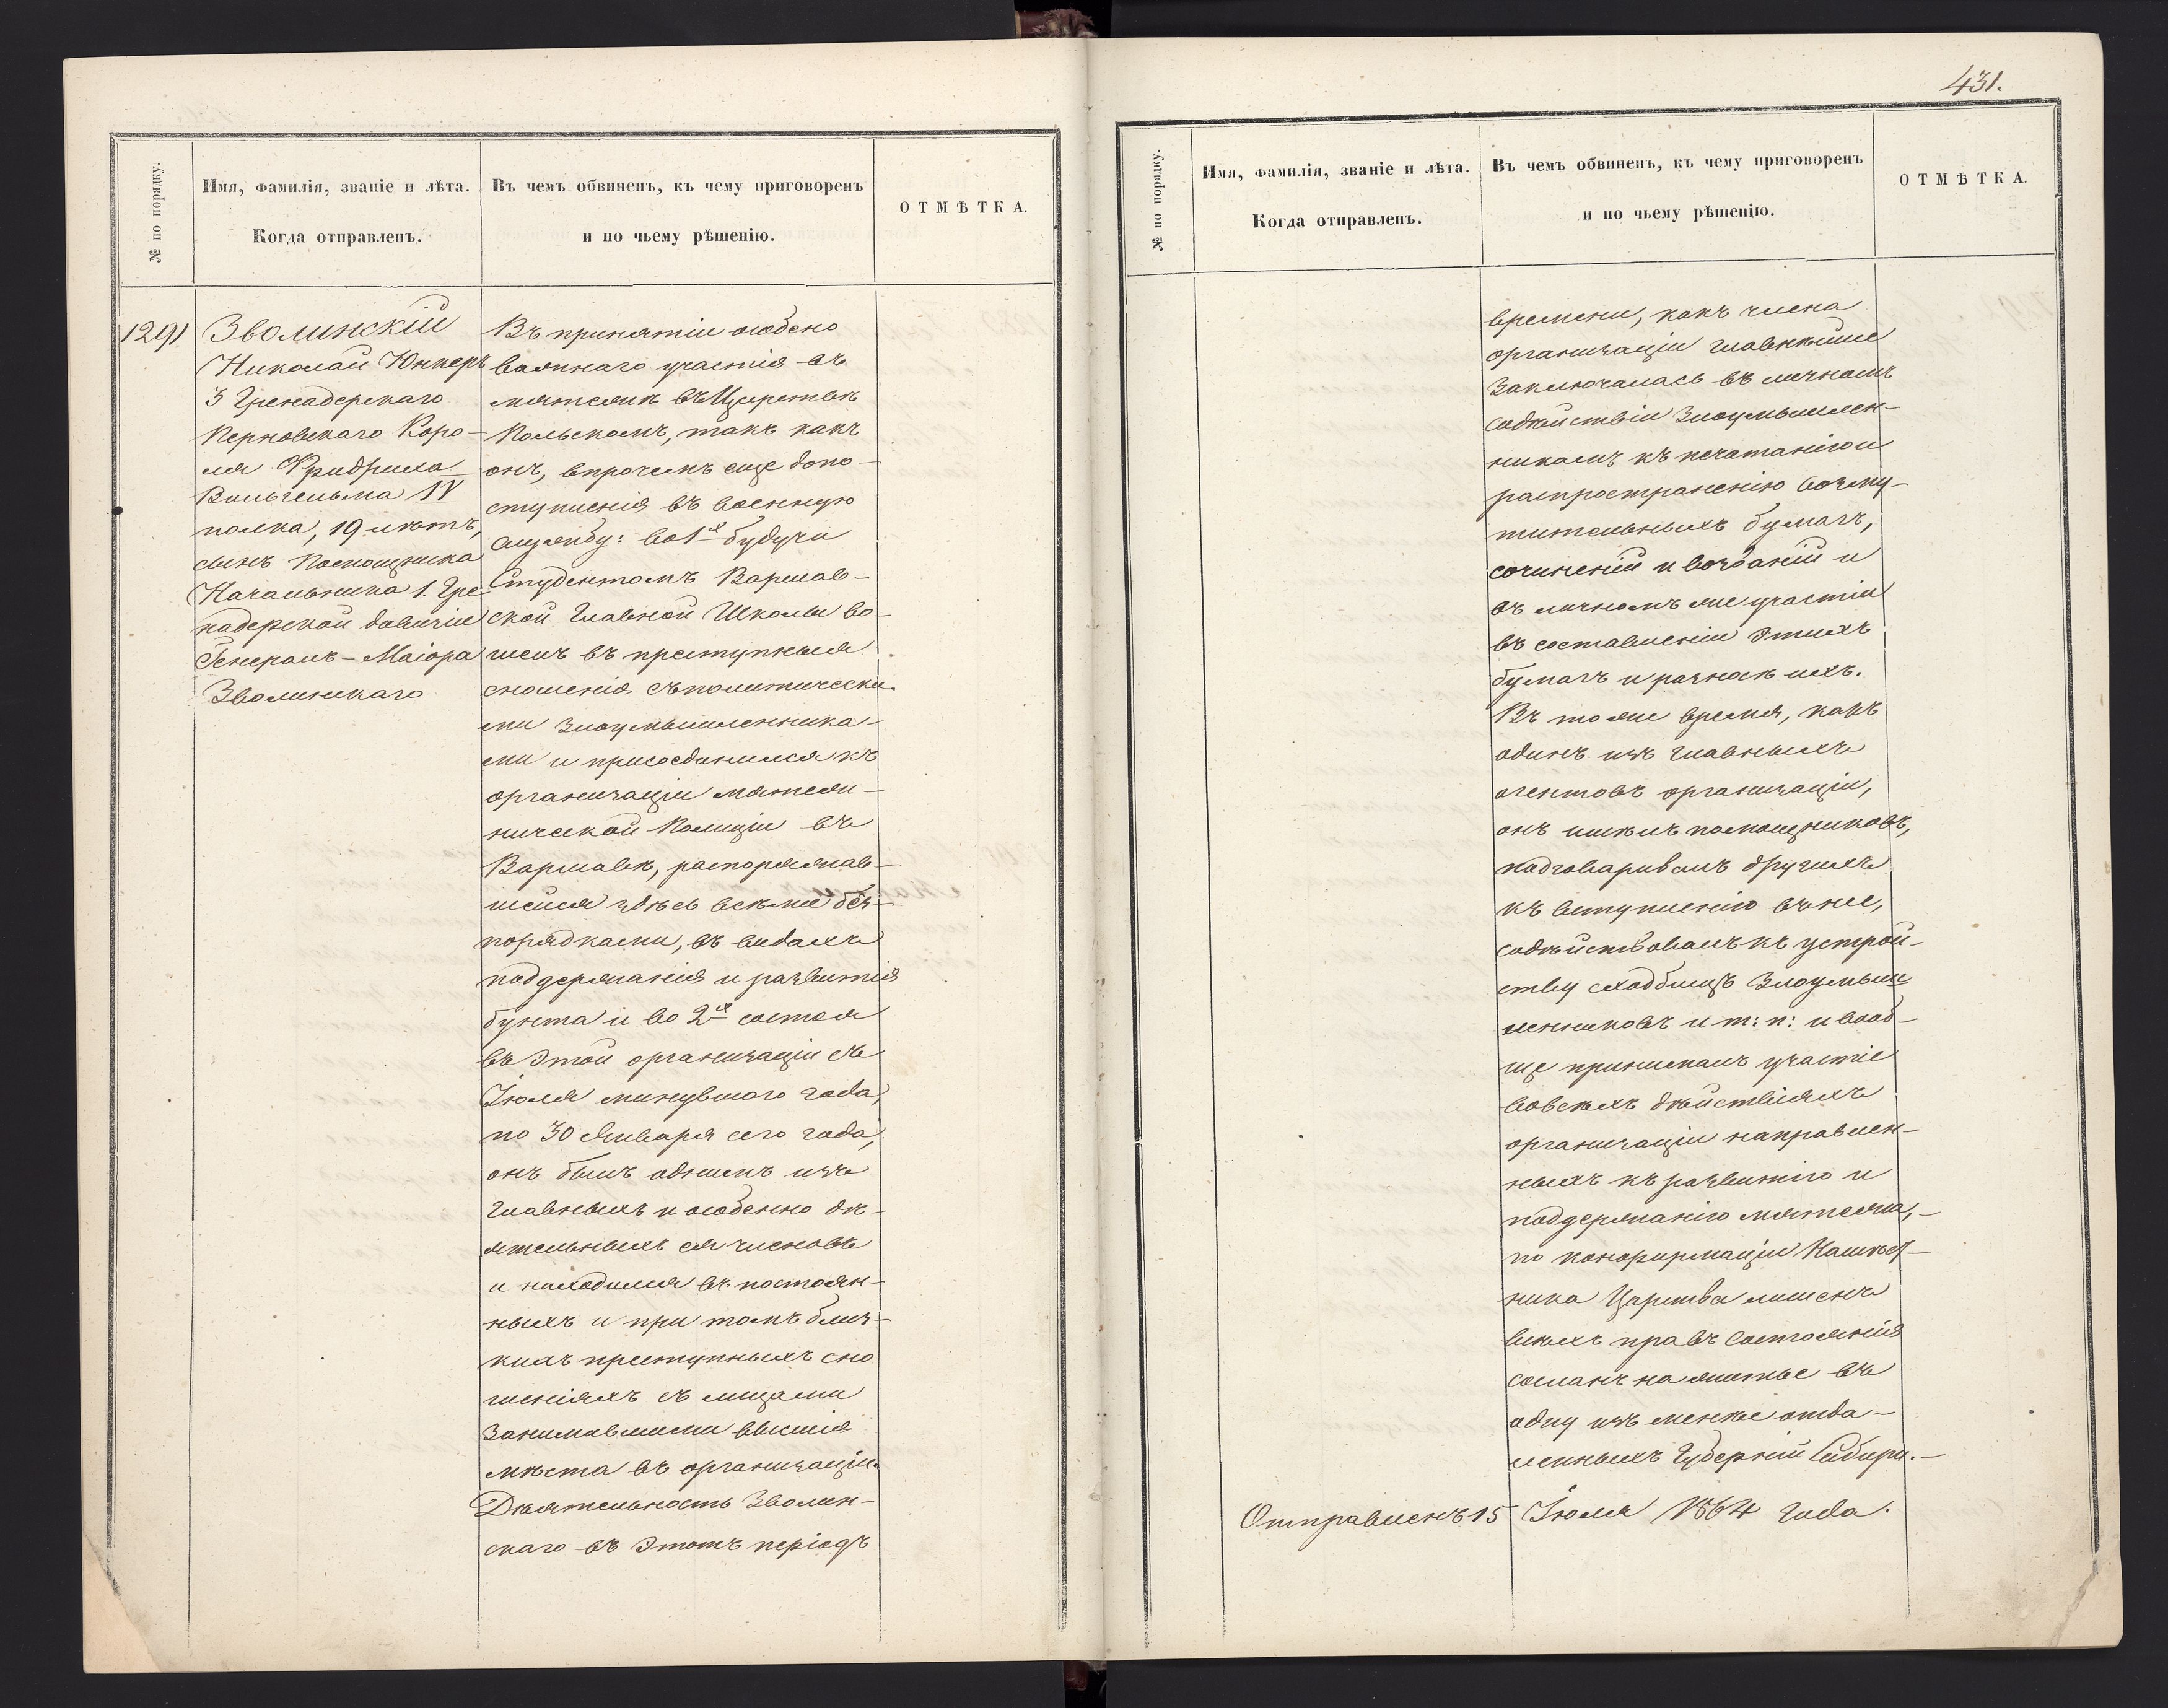 № по порядку.
Имя, фамилія, званіе и лѣта.
Когда отправленъ.
Въ чемъ обвиненъ, къ чему приговоренъ
и по чьему рѣшенію.
ОТМѢТКА.
1291
Зволинскій
Николай Юнкеръ
3 Гренадерскаго
Перновскаго Коро-
ля Фридриха
Вильгельма IV
полка, 19 лѣтъ,
сынъ Помощника
Начальника 1. Гре-
надерской дивизіи
Генералъ-Маіора
Зволинскаго
Въ принятіи особено
важнаго участія въ
мятежѣ въ Царствѣ
Польскомъ, такъ какъ
онъ, впрочемъ еще допо-
ступленія въ военную
службу: во 1х будучи
Студентомъ Варшав-
ской Главной Школы во-
шелъ въ преступныя
сношенія съ политически-
ми злоумышленника-
ми и присоединился къ
организаціи мятеж-
нической Полиціи въ
Варшавѣ, распоряжав-
шейся здѣсь всѣми без-
порядками, въ видахъ
поддержанія и развитія
бунта и во 2х состоя
въ этой организаціи съ
Іюля минувшаго года,
по 30 Января сего года,
онъ былъ однимъ изъ
главныхъ и особенно дѣ-
ятельныхъ ея членовъ
и находился въ постоян-
ныхъ и при томъ близ-
кихъ преступныхъ сно
шеніяхъ съ лицами
занимавшими высшія
мѣста въ организаціи.
Дѣятельность Зволин-
скаго въ этотъ періодъ
431.
№ по порядку.
Имя, фамилія, званіе и лѣта.
Когда отправленъ.
Въ чемъ обвиненъ, къ чему приговоренъ
и по чьему рѣшенію.
ОТМѢТКА.
времени, какъ члена
организаціи главнѣйше
заключалась въ личномъ
содѣйствіи злоумышлен-
никамъ къ печатанію и
распространенію возму-
тительныхъ бумагъ,
сочиненій и воззваній и
въ личномъ же участіи
въ составленіи этихъ
бумагъ и разноскѣ ихъ.
Въ тоже время, какъ
одинъ изъ главныхъ
агентовъ организаціи,
онъ имѣлъ помощниковъ,
подговаривалъ другихъ
къ вступленію въ нее,
содѣйствовалъ къ устрой-
ству сходбищъ злоумыш
ленниковъ и т: п: и вооб-
ще принималъ участіе
вовсѣхъ дѣйствіяхъ
организаціи направлен-
ныхъ къ развитію и
поддержанію мятежа,-
по конфирмаціи Намѣст-
ника Царства лишенъ
всѣхъ правъ состоянія
сосланъ на житье въ
одну изъ менѣе отда-
ленныхъ Губерній Сибири.-
Отправленъ 15 Іюля 1864 года.